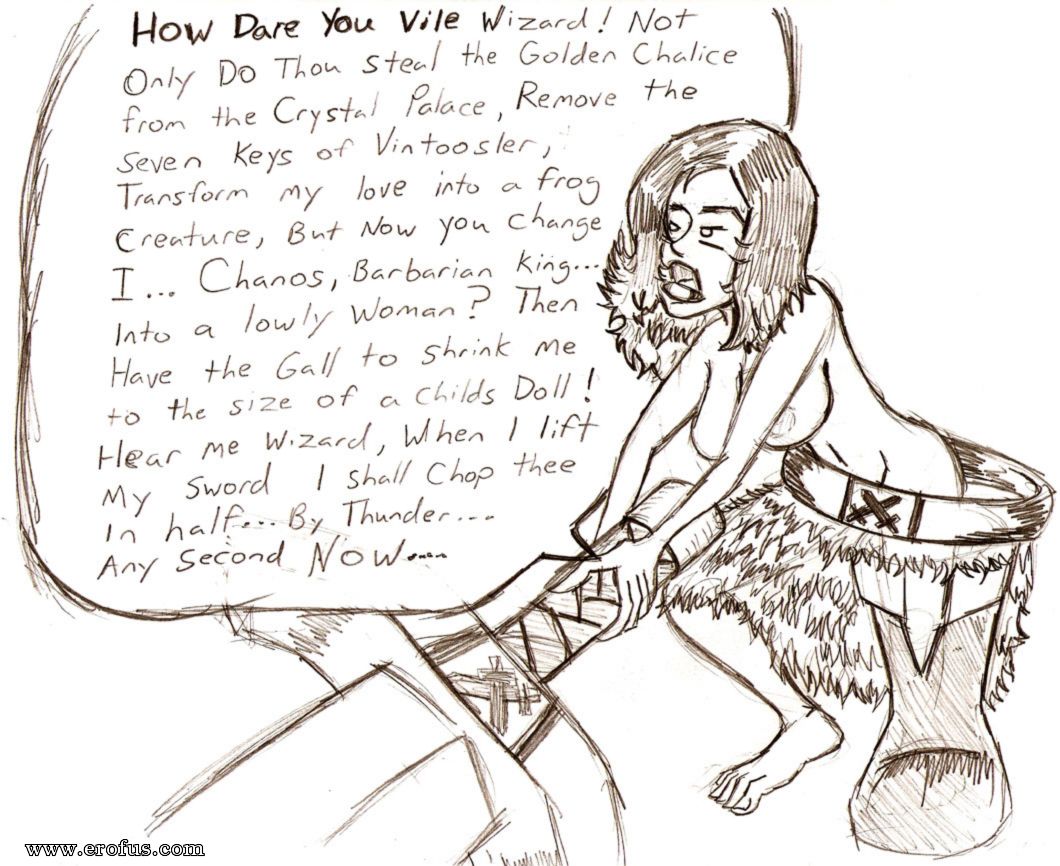 How Dare You Vile Wizard! Not
Only Do Thou Steal the Golden Chalice
from the Crystal Palace, Remove the
Seven Keys of Vintoosler,
Transform my love into a frog
Creature, But Now you change
I... Chanos, Barbarian King...
Into a lowly Woman? Then
Have the Gall to shrink me
to the size of a childs Doll!
Hear me Wizard, When I lift
My sword I shall Chop thee
In half... By Thunder...
Any Second Now....
www.erofus.com